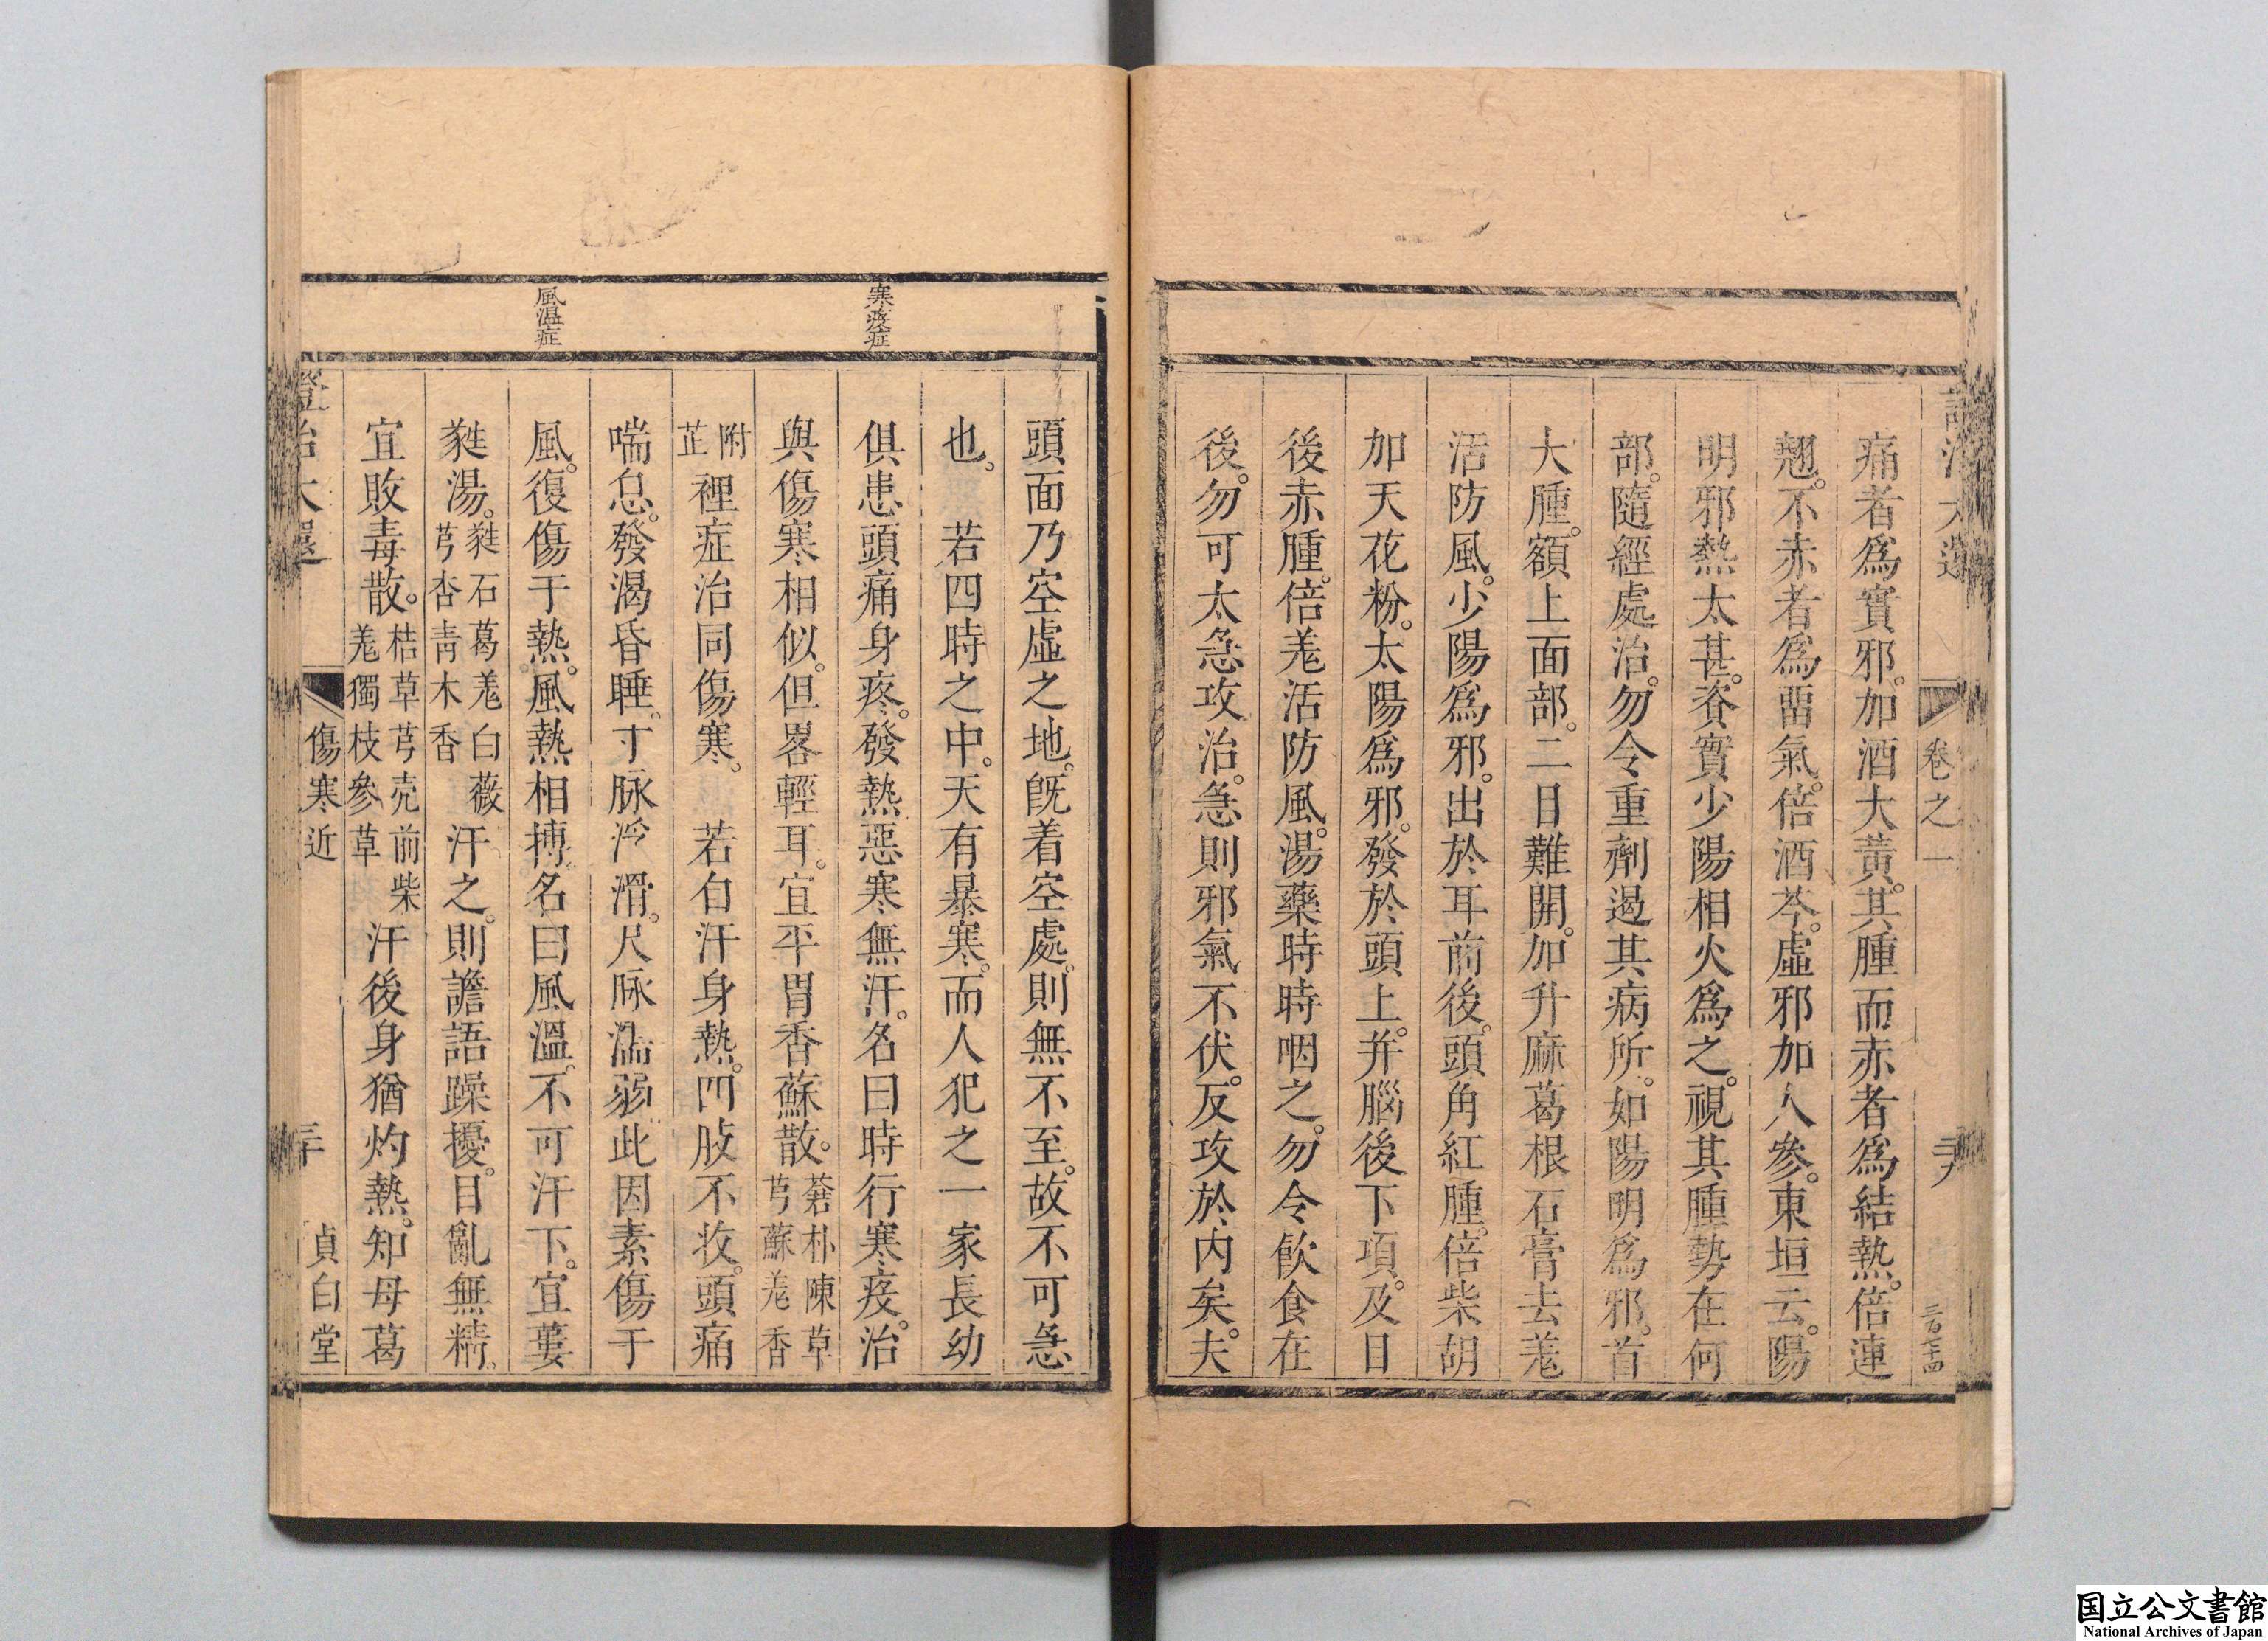 卷之一
三百七十四
痛者爲實邪。加酒大黃。其腫而赤者爲結熱。倍連
翹。不赤者爲畱氣。倍酒芩。虛邪加人參。東垣云。陽
明邪熱太甚。資實少陽相火爲之。視其腫勢在何
部。隨經處治。勿令重劑遏其病所。如陽明爲邪。首
大腫。額上面部。二目難開。加升麻葛根石膏去羗
活防風。少陽爲邪。出於耳前後。頭角紅腫。倍柴胡
加天花粉。太陽爲邪。發於頭上。并腦後下項。及目
後赤腫。倍羗活防風。湯藥時時咽之。勿令飲食在
後。勿可太急攻治。急則邪氣不伏。反攻於內矣。夫
頭面乃空虛之地。旣着空處。則無不至。故不可急
也。　若四時之中。天有暴寒。而人犯之一家長幼
寒疫症
俱患頭痛身疼。發熱惡寒無汗。名曰時行寒疫。治
與傷寒相似。但畧輕耳。宜平胃香蘇散。蒼朴陳草芎蘇羗香
附芷裡症治同傷寒。　若自汗身熱。四肢不收。頭痛
喘息。發渴昏睡。寸脉浮滑。尺脉濡弱。此因素傷于
風溫症
風。復傷于熱。風熱相搏。名曰風溫。不可汗下。宜葽
蕤湯。蕤石葛羗白薇芎杏靑木香汗之。則譫語躁擾。目亂無精。
宜敗毒散。桔草芎壳前柴羗獨枝參草汗後身猶灼熱。知母葛
證治大還
傷寒近
貞白堂
国立公文書館
National Archives of Japan